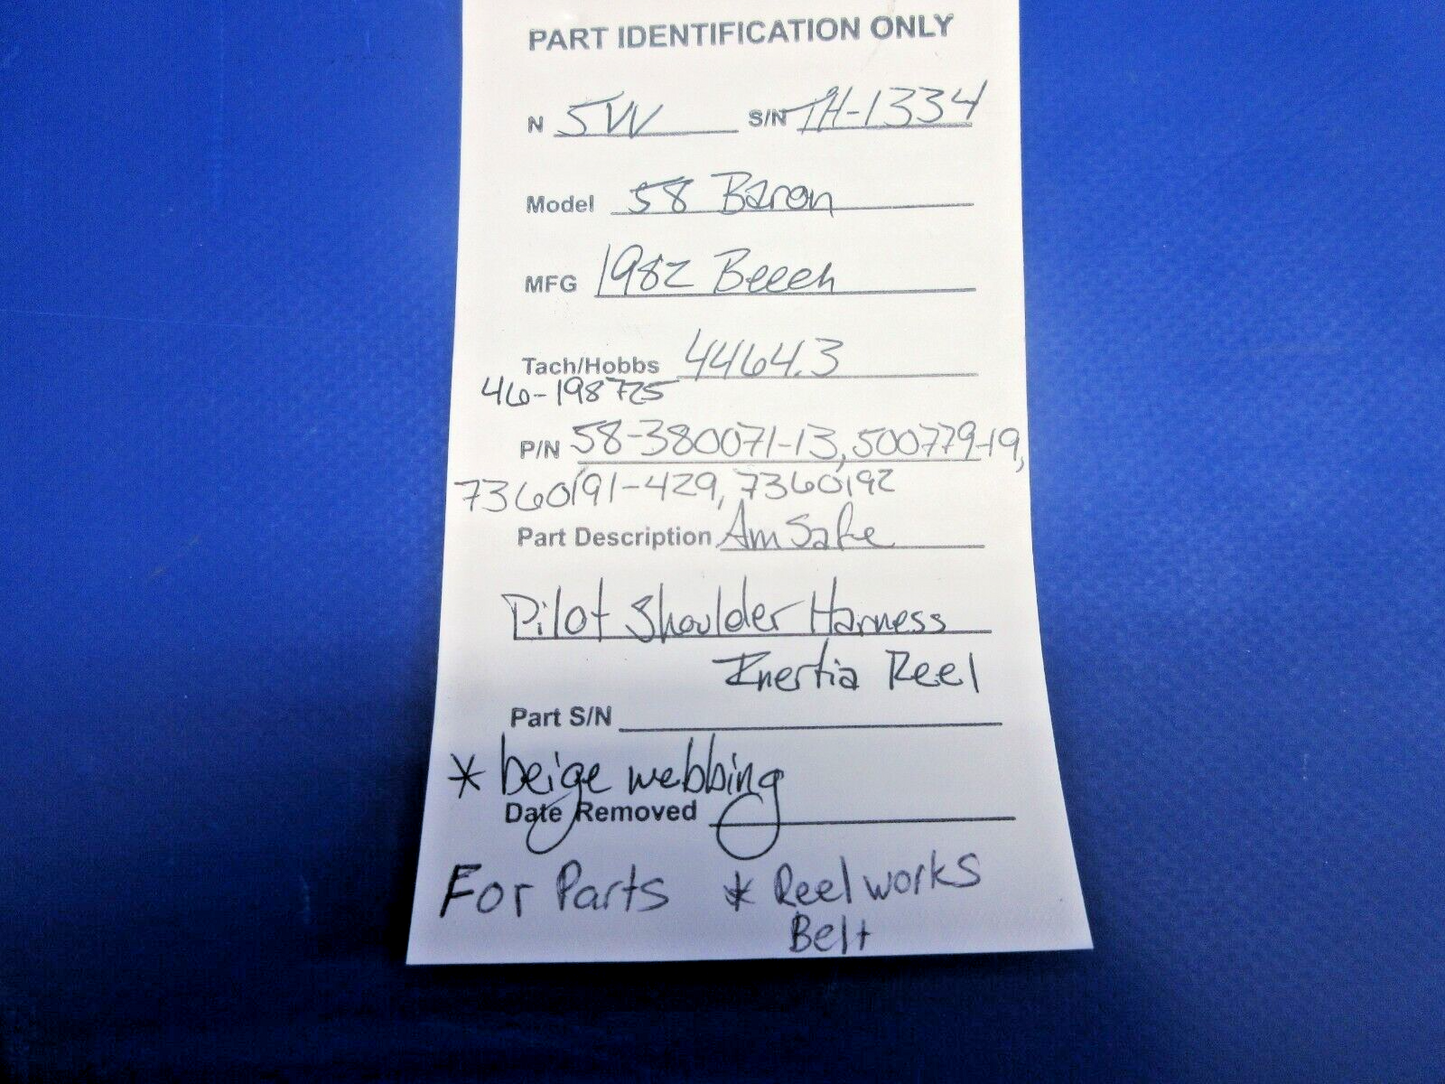 PART IDENTIFICATION ONLY
N 5VV S/N TH-1334
Model 58 Baron
MFG 1982 Beech
Tach/Hobbs 4464.3
46-198725
P/N 58-380071-13, 500779-19,
7360191-429, 7360192
Part Description AmSafe
Pilot Shoulder Harness
Inertia Reel
Part S/N
* beige webbing
Date Removed
For Parts * Reel works
Belt